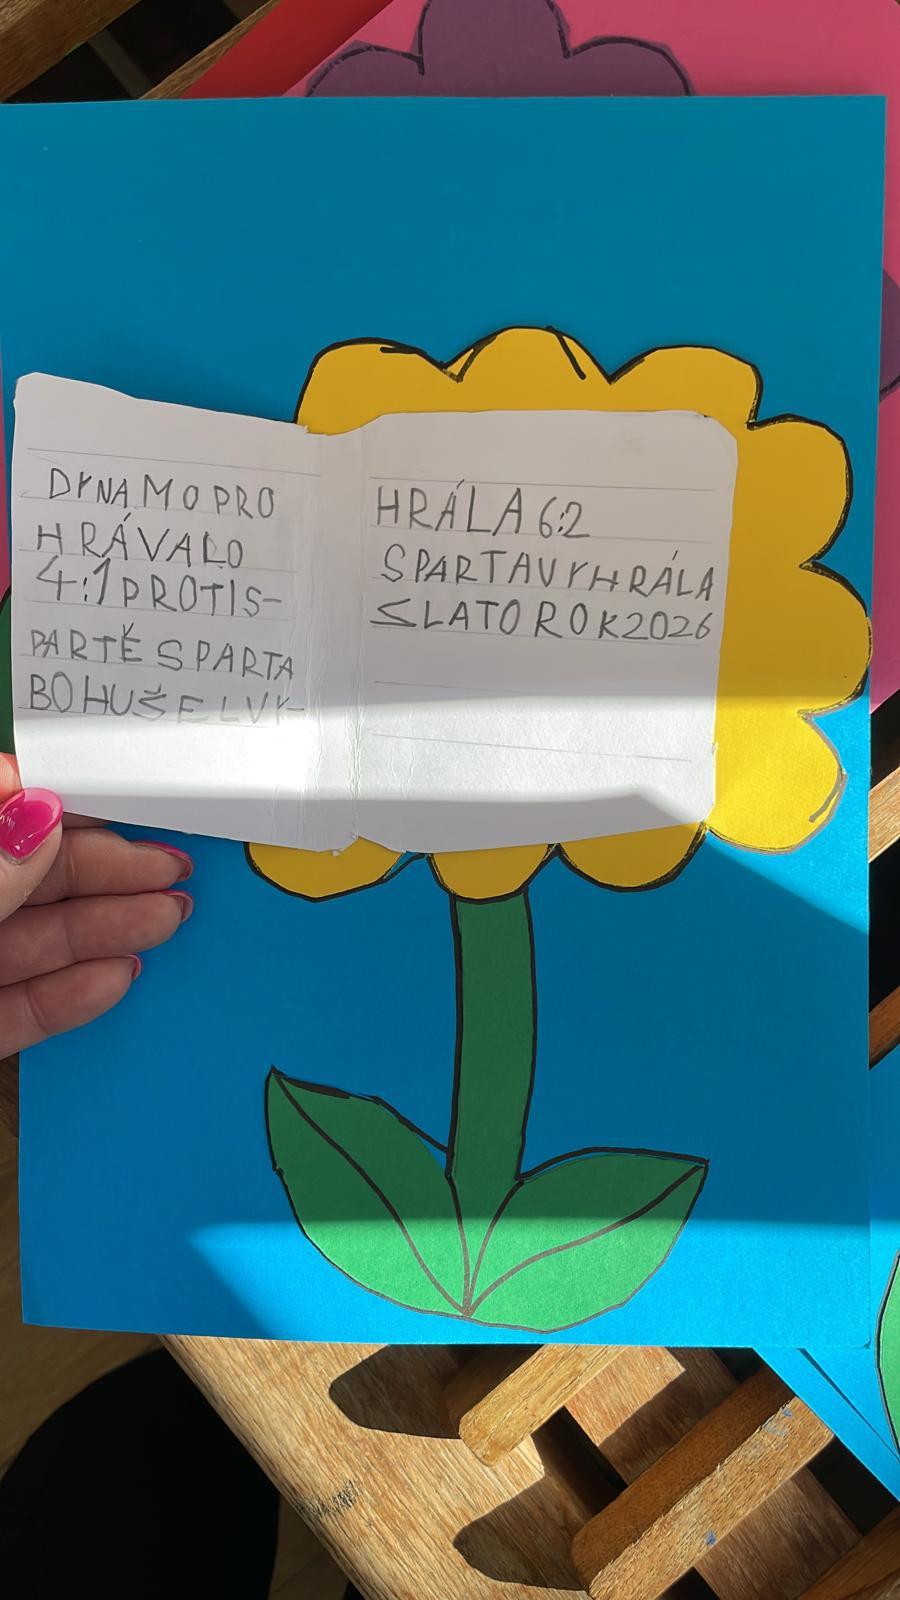 DYNAMOPRO
HRÁVALO
4:1PROTIS-
PARTĚSPARTA
BOHUŠELVY-
HRÁLA6:2
SPARTAVYHRÁLA
SLATOROK2026